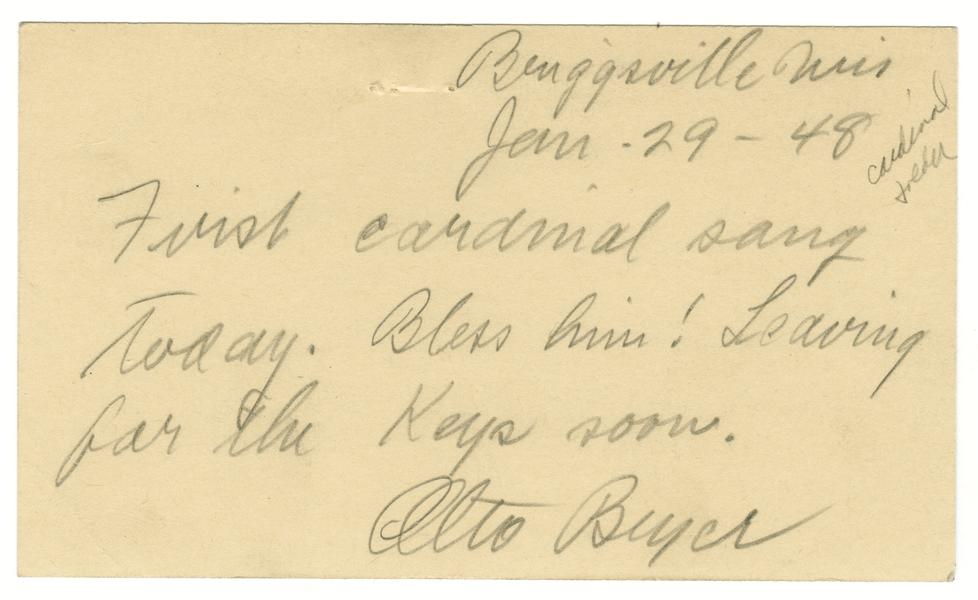 Briggsville Wis
Jan. 29 - 48
cardinal
First cardinal sang
today. Bless him! Leaving
for the Keys soon.
Otto Beyer